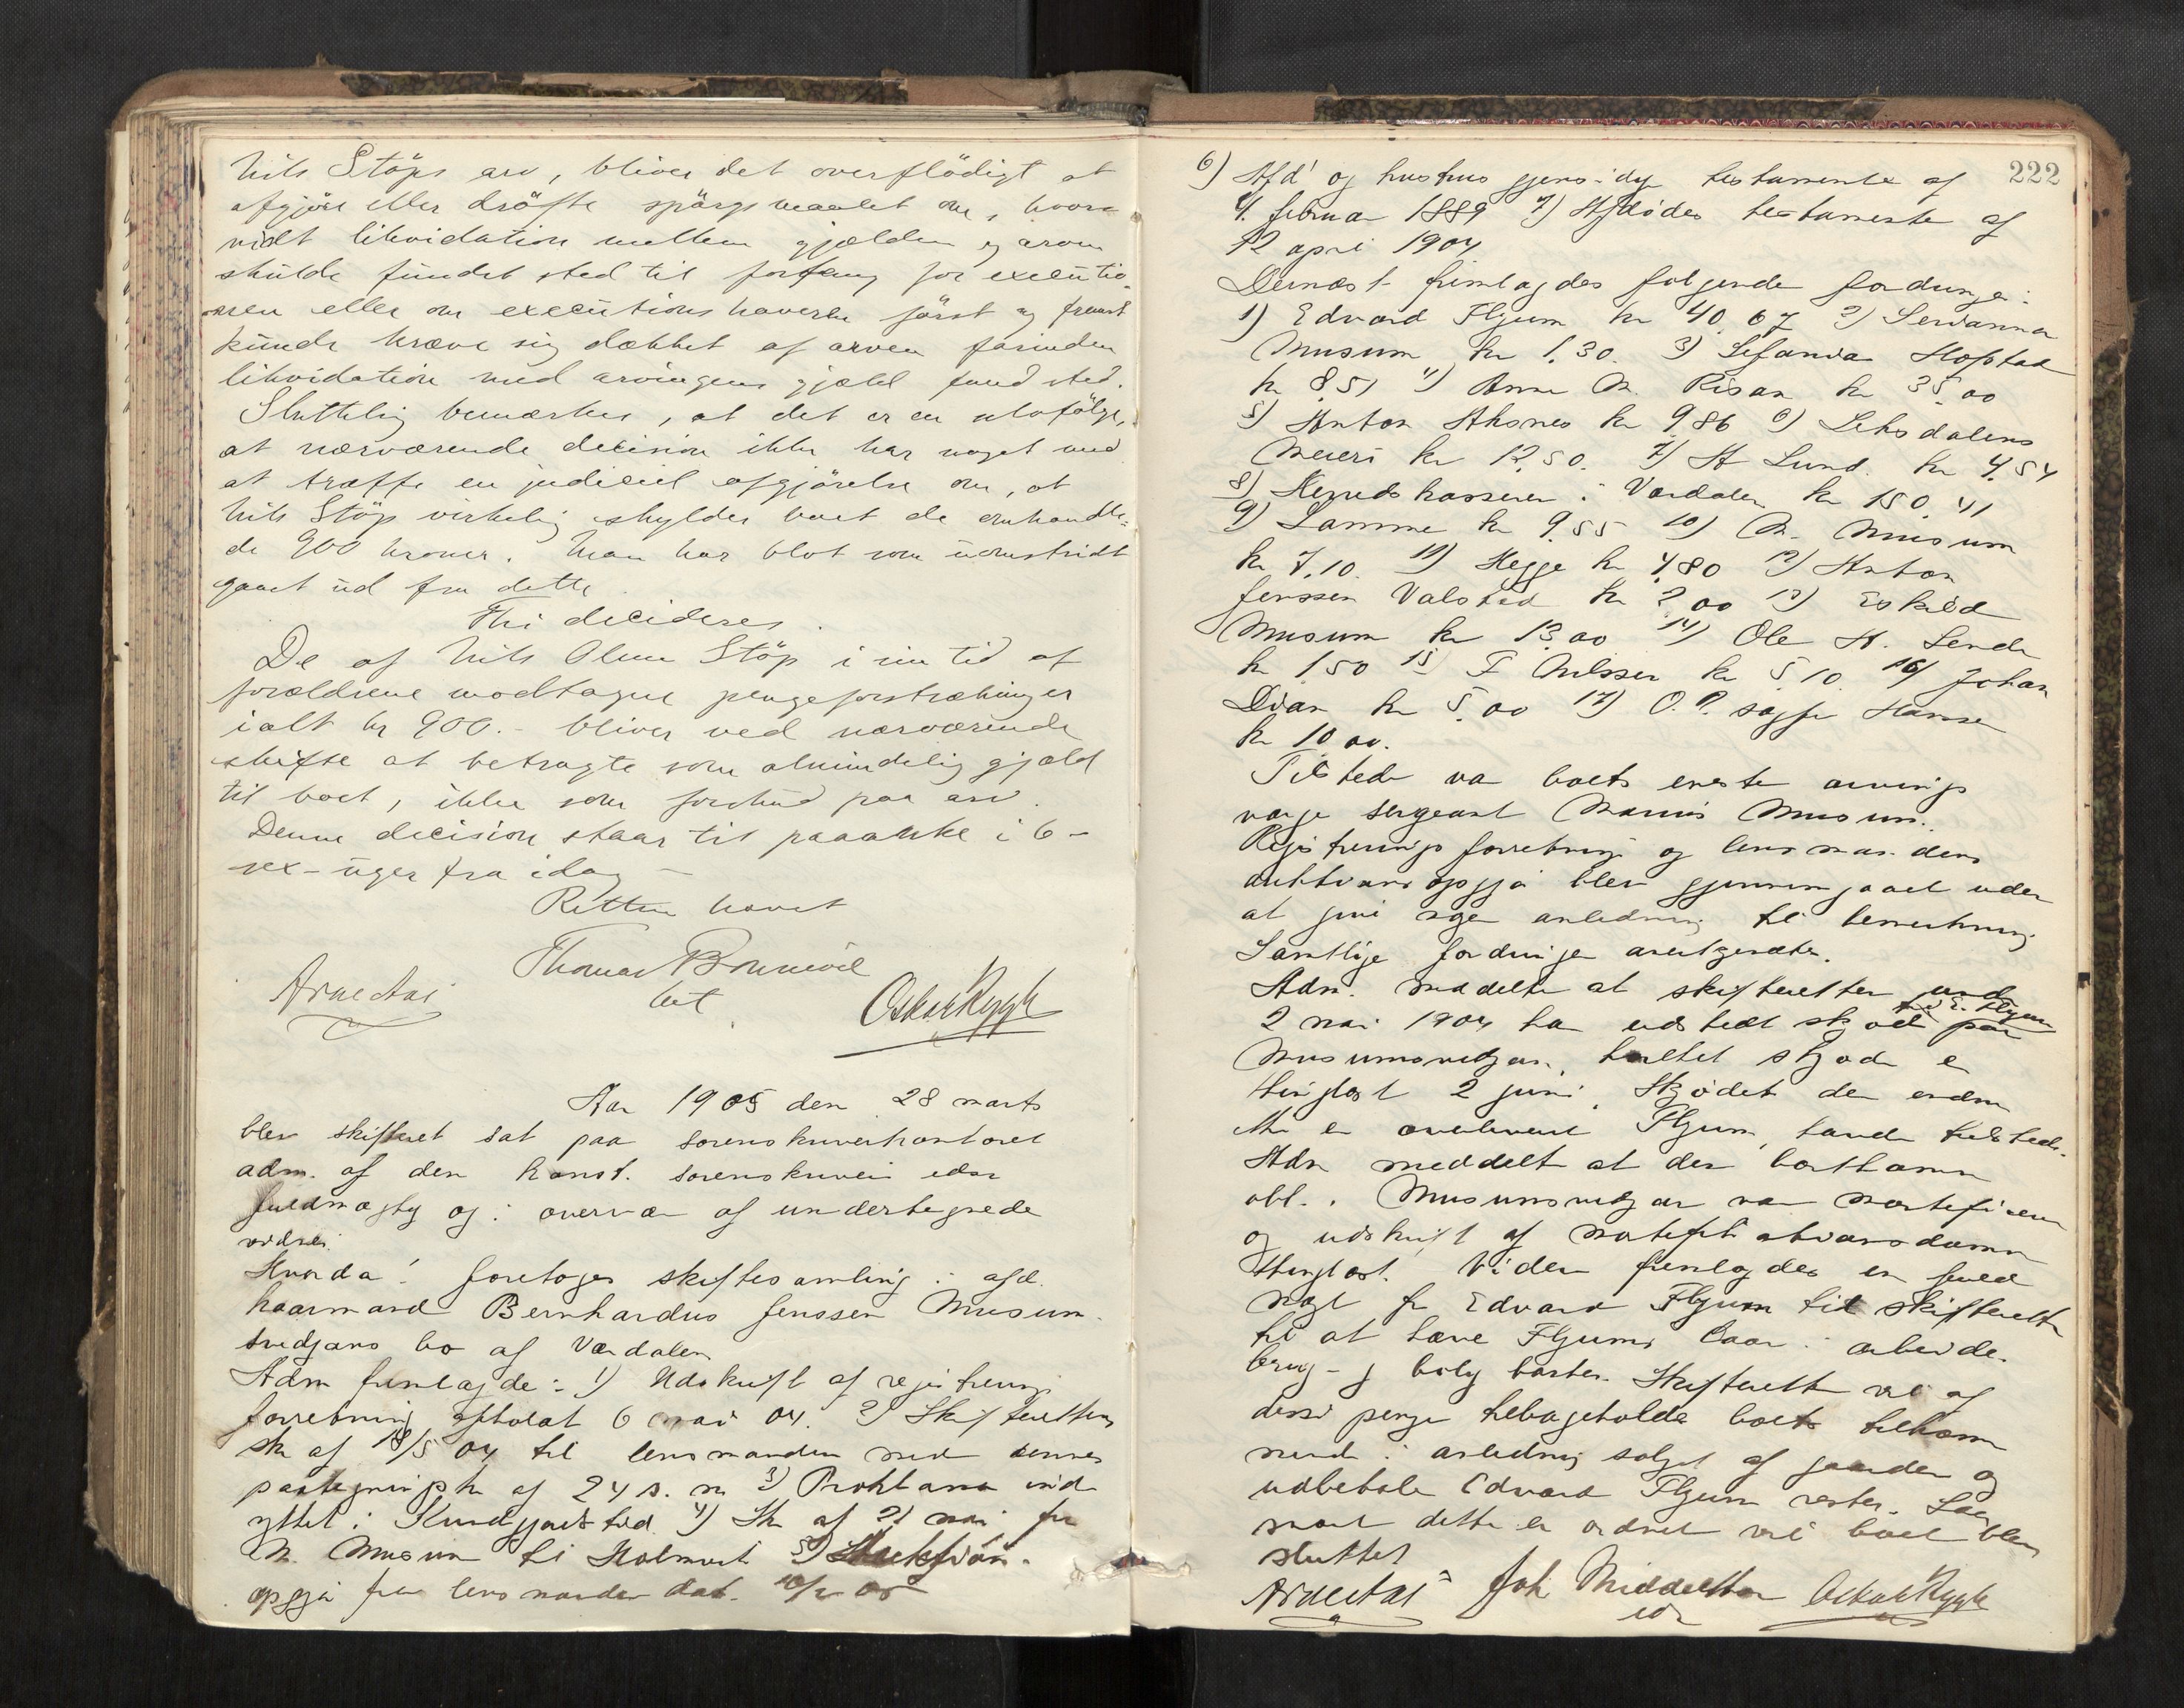 Nils Stöps arv, bliver det overflödigt at
afgjöre eller dröfte spörgsmaalet om, hvor-
vidt likvidation mellem gjælden og arven
skulde fundet sted til fortrang for executio-
nen eller om executionshaveren först og fremst
kunde kræve sig dækket af arven forinden
likvidation med arvingens gjæld fand sted.
Sluttelig bemærkes, at det er en selvfölge,
at nærværende decision ikke har noget med
at træffe en judiciel afgjörelse om, at
Nils Stöp virkelig skylder boet de omhandle-
de 900 kroner. Man har blot som uomstridt
gaaet ud fra dette.
Thi decideres.
De af Nils Olsen Stöp i sin tid af
forældrene modtagne pengeforstrækninger
ialt kr 900.- bliver ved nærværende
skifte at betragte som almindelig gjæld
til boet, ikke som forskud paa arv.
Denne decision staar til paaanke i 6-
sex-uger fra idag -
Retten hævet
Thomas Bonnevie
Arne Aas
OskarRygh
Aar 1905 den 28 marts
blev skifteret sat paa sorenskriverkontoret
adm. af den konst. sorenskriver
fuldmægtig og i overvær af undertegnede
vidner.
Hvorda! foretoges skiftesamling i afd.
kaarmand Bernhardus Jenssen Musum-
vedjans bo af Værdalen
Adm fremlagde: 1) Udskrift af registrerings
forretning afholdt 6 mai 04. 2) Skifterettens
sk af 18/5 04 til lensmanden med dennes
paategningsk af 24 s. m 3) Proklama ind
ryttet i Kundgjørelsestid. 4) Sk af 21 mai fra
M. Musum til Holmvik 5) Auktions-
opgjør fra lensmanden dat.
222
6) Afd' og hustrus gjensidige testamente af
4. februar 1889 7) Afdødes testamente af
12 april 1904
Dernæst fremlagdes følgende fordringer:
1) Edvard Flyum kr 40.67 2) Serianna
Musum kr 1.30. 3) Sefanias Hofstad
kr 8.51 4) Anne M. Risan kr 35.00
5) Anton Aksnes kr 9.86 6) Leksdalens
Meieri kr 12.50. 7) A Lund. kr 4.54
8) Herredskasseren i Værdalen kr 150.41
9) Samme kr 9.55 10) M. Musum
kr 7.10. 11) Hegge kr 4.80 12) Anton
Jenssen Valstad kr 2.00 13) Eskild
Musum kr 13.00 14) Ole A. Lende
kr 1.50 15) F Nilssen kr 5.10 16) Johan
kr 5.00 17) O.P. Hansen
kr 10.00.
Tilstede var boets eneste arvings
værge sergeant Marius Musum.
Registrerings forretning og lensmandens
auktionsopgjør blev gjennemgaaet uden
at give nogen anledning til bemerkning
Samtlige fordringer anerkjendtes.
Adm. meddelte at skifteretten under
2 mai 1904 har udstedt skjøde til E. Flyum paa
Musumsvedjan, hvilket skjøde er
thinglæst 2 juni. Skjødet der endnu
ikke er overleveret Flyum, havdes tilstede.
Adm meddelte at den bortkomne
obl. i Musumsvedjan var mortificeret
og udskrift af mortifikationsdommen
thinglæst. Videre fremlagdes en fuld
magt fra Edvard Flyum til skifteretten
til at hæve Flyums laan i arbeider-
brug- og bolig banken. Skifteretten vil af
disse penge tilbageholde boets tilkom
mende i anledning salget af gaarden og
udbetale Edvard Flyum resten. Saa
snart dette er ordnet vil boet blive
sluttet
Arne Aas Joh Middelthon OskarRygh